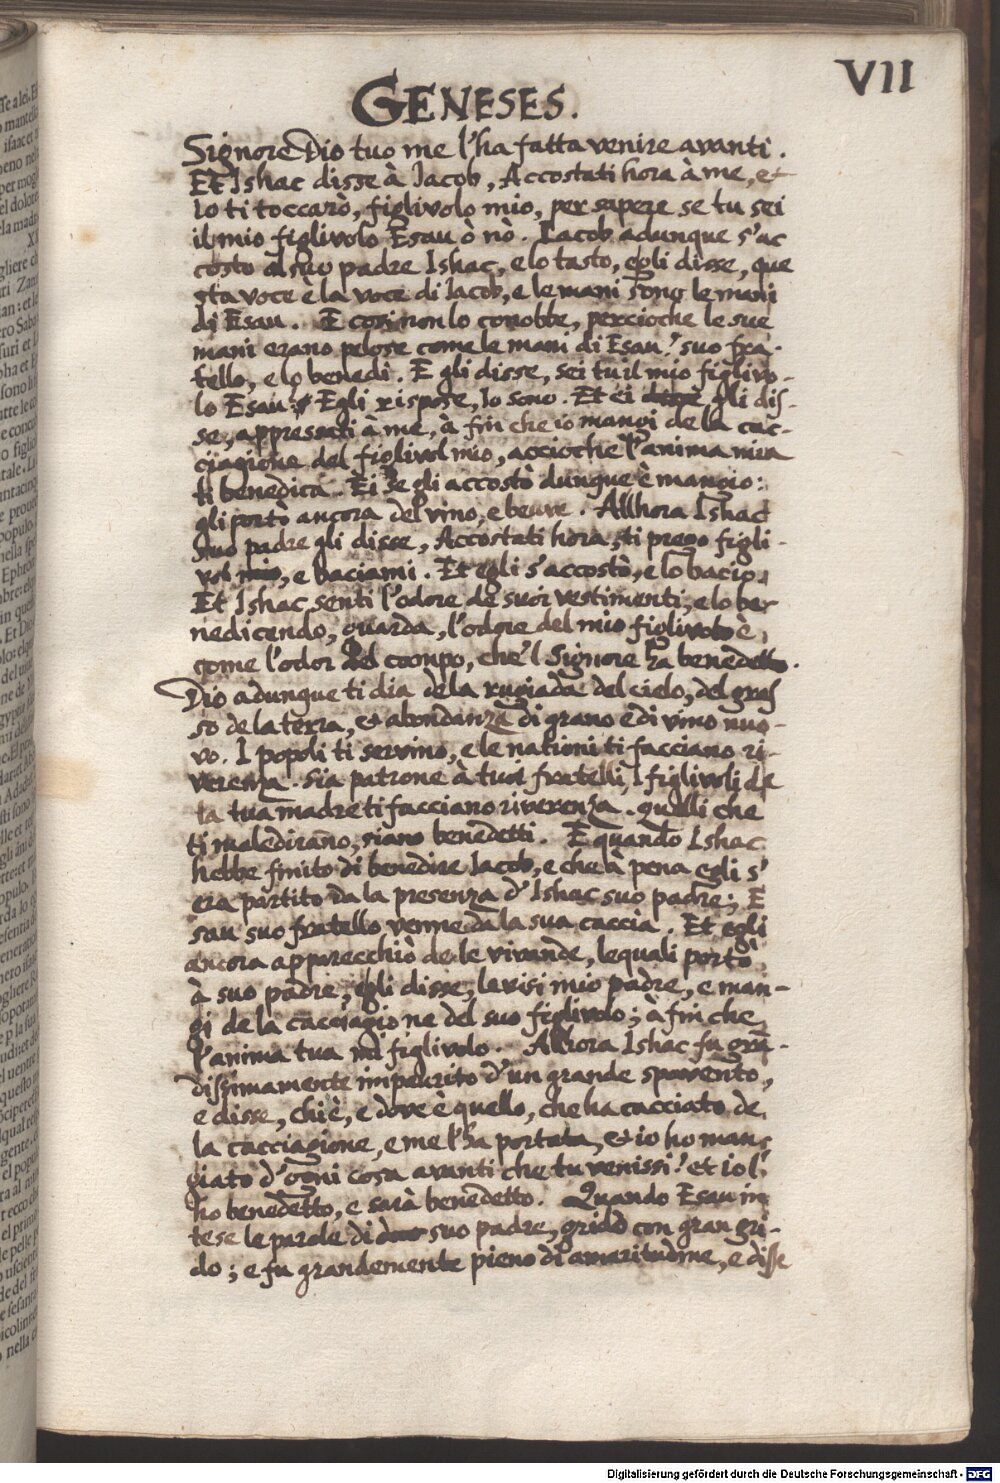 VII
GENESES.
Signore Dio tuo me l'ha fatta venire avanti.
Et Ishac disse à Iacob, Accostati hora à me, et
Io ti toccarò, figlivolo mio, per sapere se tu sei
il mio figlivolo Esau ò nò. Iacob adunque s'ac
costo al suo padre Ishac, e lo tasto, egli disse, que
sta voce è la voce di Iacob, e le mani sono le mani
di Esau. E cosi non lo conobbe, percioche le sue
mani erano pelose come le mani di Esau suo fra-
tello, e lo benedi. E gli disse, sei tu il mio figlivo-
lo Esau? Egli rispose, Io sono. Et ei gli dis-
se, appressati à me, à fin che io mangi de la cac-
ciagione del figlivol mio, accioche l'anima mia
ti benedica. Ei se gli accostò dunque è mangio:
gli portò ancora del vino, e beuve. Allhora Ishac
suo padre gli disse, Accostati hora, ti prego figli-
vol mio, e baciami. Et egli s'accostò, e lo bacio.
Et Ishac, senti l'odore de suoi vestimenti, e lo be
nedicendo, guarda, l'odore del mio figlivolo è,
come l'odor del campo, che'l Signore ha benedetto.
Dio adunque ti dia de la rugiada del cielo, del gras
so de la terra, et abondanza di grano e di vino nuo-
vo. I popoli ti servino, e le nationi ti facciano ri-
verenza. Sia patrone à tuoi fratelli, I figlivoli de
ta tua madre ti facciano riverenza. Quelli che
ti malediranno, siano benedetti. E quando Ishac
hebbe finito di benedire Iacob, e che à pena egli s'
era partito da la presenza d'Ishac suo padre; E
sau suo fratello venne da la sua caccia. Et egli
ancora apparecchiò de le vivande, lequali portò
à suo padre, egli disse, levisi mio padre, e man-
gi de la cacciagione del suo figlivolo; à fin che
l'anima tua figlivolo. Allhora Ishac fu grã-
dissimamente impaurito d'un grande spavento,
e disse, chi è, e dove è quello, che ha cacciato de
la cacciagione, e me l'ha portata, et io ho man-
giato d'ogni cosa avanti che tu venissi? et io l'
ho benedetto, e sarà benedetto. Quando Esau in
tese le parole di suo padre, gridò con gran gri-
do; e fu grandemente pieno di amaritudine, e disse
Digitalisierung gefördert durch die Deutsche Forschungsgemeinschaft - DFG